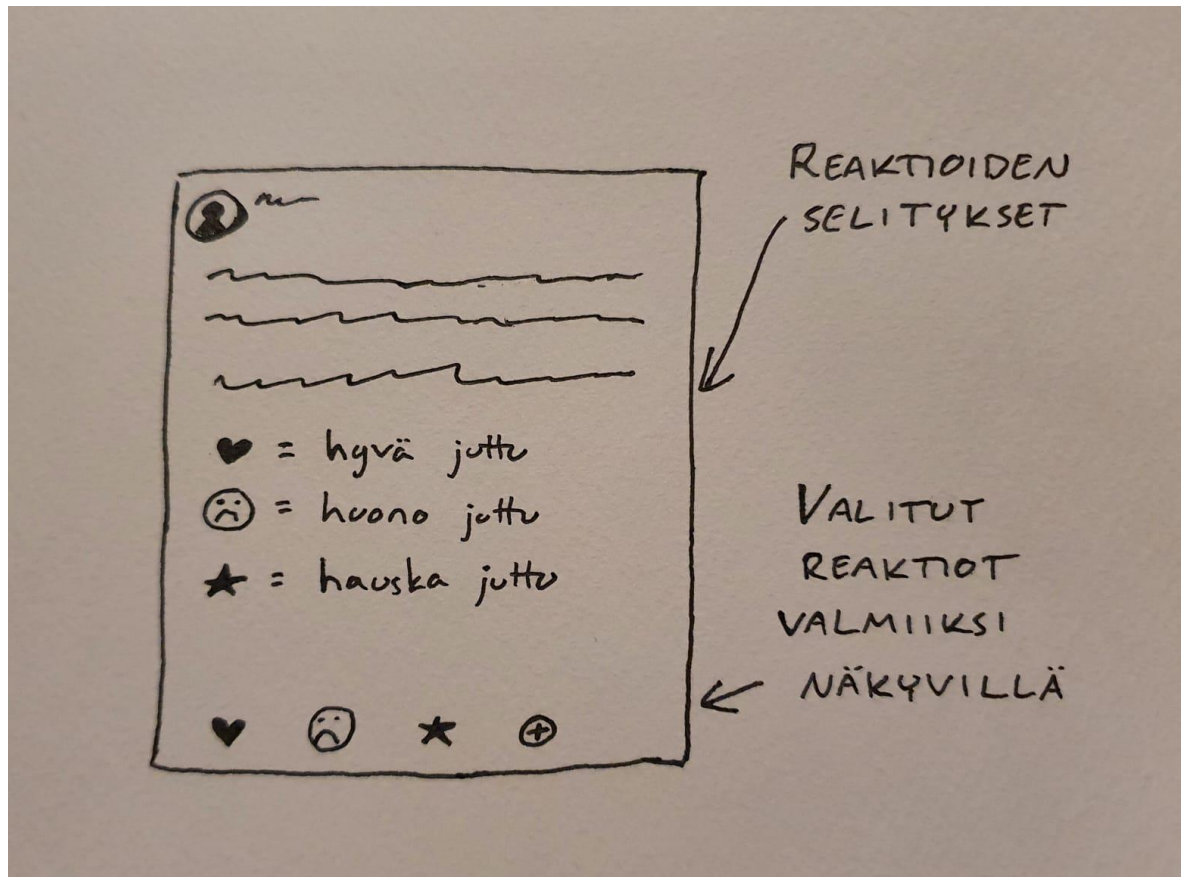 REAKTIOIDEN
SELITYKSET
= hyvä juttu
= huono juttu
= hauska juttu
VALITUT
REAKTIOT
VALMIIKSI
NÄKYVILLÄ